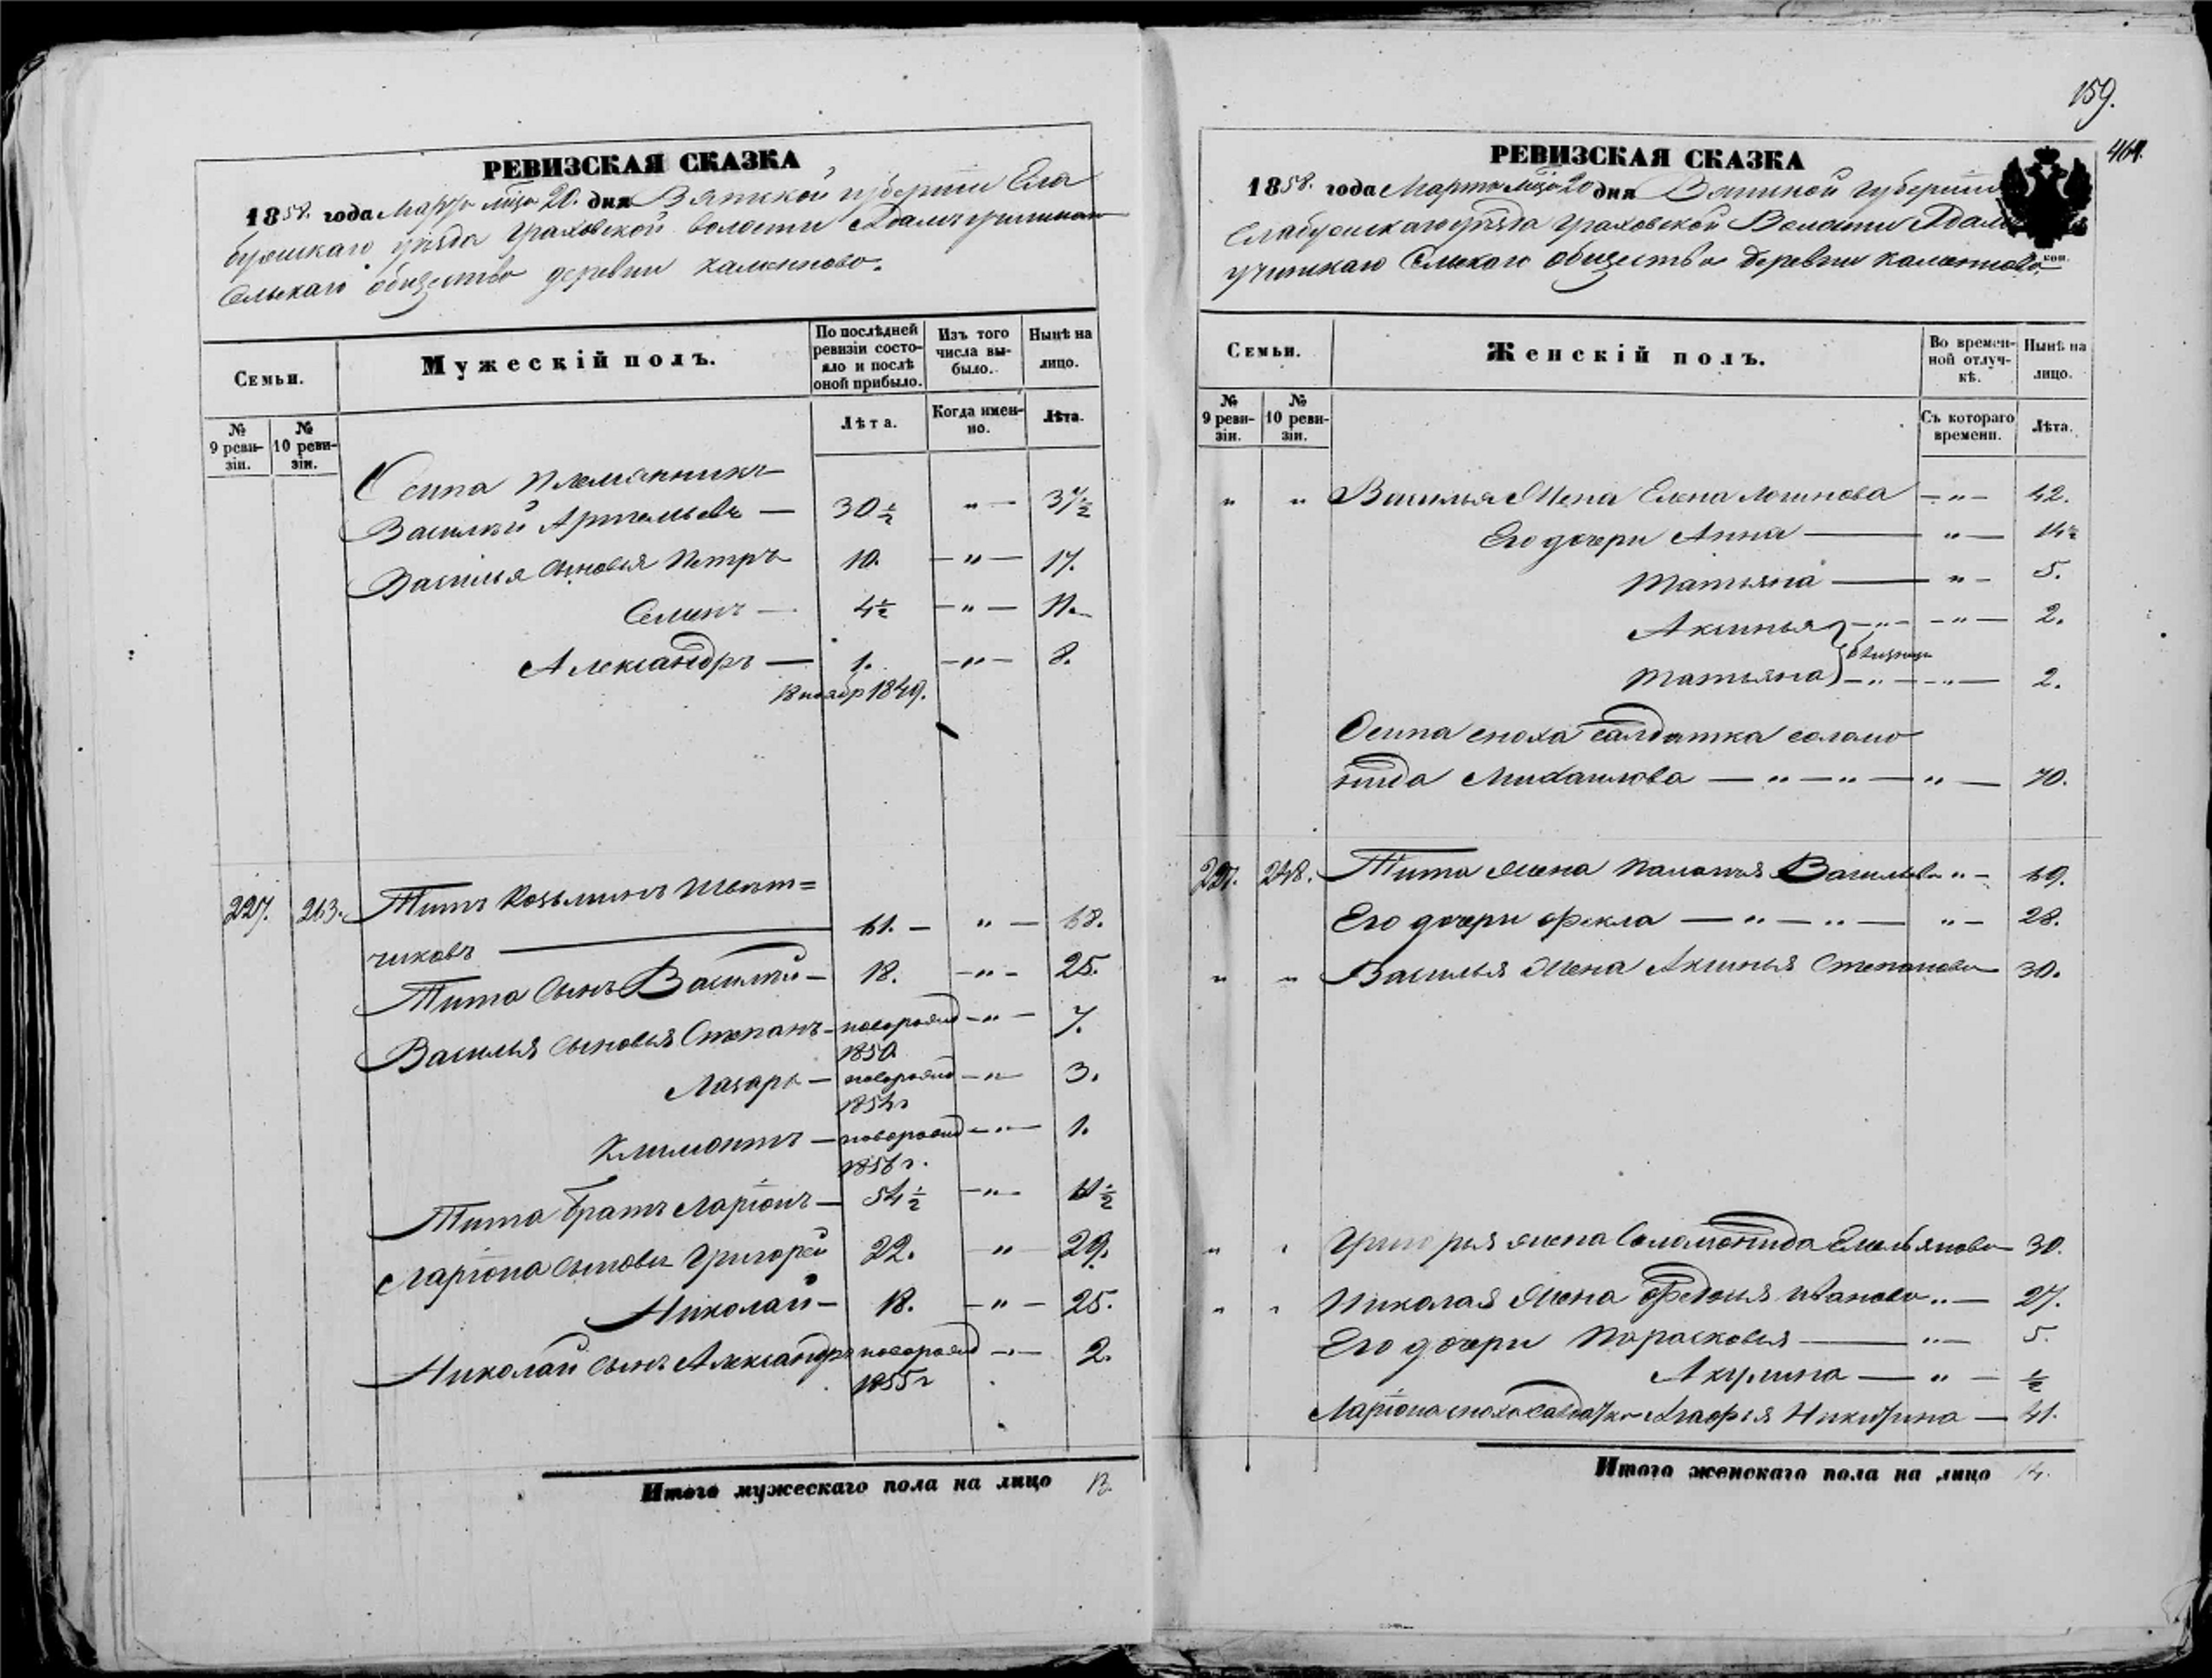 РЕВИЗСКАЯ СКАЗКА
1858. года Марта мѣсца 20. дня Вятской губернии Ела
бужскаго уѣзда Граховской волости
Сельскаго общества деревни Каменново.
Семьи.
Мужескій полъ.
По послѣдней ревизіи состояло и послѣ оной прибыло.
Изъ того числа выбыло.
Нынѣ на лицо.
№ 9 ревизіи.
№ 10 ревизіи.
Лѣта.
Когда именно.
Лѣта.
Осипа племянникъ
Василий Артемьевъ — 30½ " — 37½
Василья сыновья Петръ 10. — " — 17.
Семенъ — 4½ — " — 11.
Александръ — 1. — " — 8.
1849.
227. 263. Титъ Козьминъ
чиковъ — 61. — " — 68.
Тита сынъ Василий — 18. — " — 25.
Василья сыновья Степанъ — новорожд — " — 7.
1850
Лазарь — новорожд — " — 3.
1854г
Климонтъ — новорожд — " — 1.
1856г.
Тита братъ Ларіонъ — 54½ — " — 61½
Ларіона сыновья Григорей 22. — " — 29.
Николай — 18. — " — 25.
Николай сынъ Александръ новорожд — " — 2.
1855г
Итого мужескаго пола на лицо 13.
159.
464.
РЕВИЗСКАЯ СКАЗКА
1858. года Марта мѣсца 20 дня Вятской губерніи
Елабужскаго уѣзда Граховской Волости Адам
учинскаго Сельскаго общества деревни Каменново
коп.
Семьи.
Женскій полъ.
Во временной отлучкѣ.
Нынѣ на лицо.
№ 9 ревизіи.
№ 10 ревизіи.
Съ котораго времени.
Лѣта.
" " Василья Жена Елена Логинова — " — 42.
Его дочери Анна — " — 14½
Татьяна — " — 5.
Аксинья — " — " — 2.
близнецы
Татьяна — " — " — 2.
Осипа сноха салдатка соломо
нида Михаилова — " — " — " — 70.
227. 248. Тита жена Палагья Васильева " — 69.
Его дочери Фекла — " — " — " — 28.
" " Василья Жена Аксинья Степанова — 30.
" " Григорья жена Соломонида Емельянова — 30.
" " Николая Жена Федосья Иванова " — 27.
Его дочери Парасковья — " — 5.
Акулина — " — ½
Ларіона сноха салдатка Агафья Никитина — 41.
Итого женскаго пола на лицо 14.